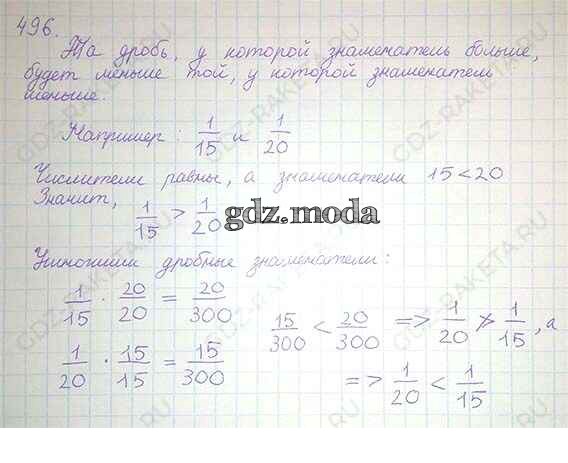 496.
Та дробь, у которой знаменатель больше,
будет меньше той, у которой знаменатель
меньше.
Например: 1/15 и 1/20
Числители равны, а знаменатели 15 < 20
Значит, 1/15 > 1/20
gdz.moda
Умножим дробные знаменатели:
1/15 · 20/20 = 20/300
1/20 · 15/15 = 15/300
15/300 < 20/300 => 1/20 > 1/15, а
=> 1/20 < 1/15
GDZ-RAKETA.RU